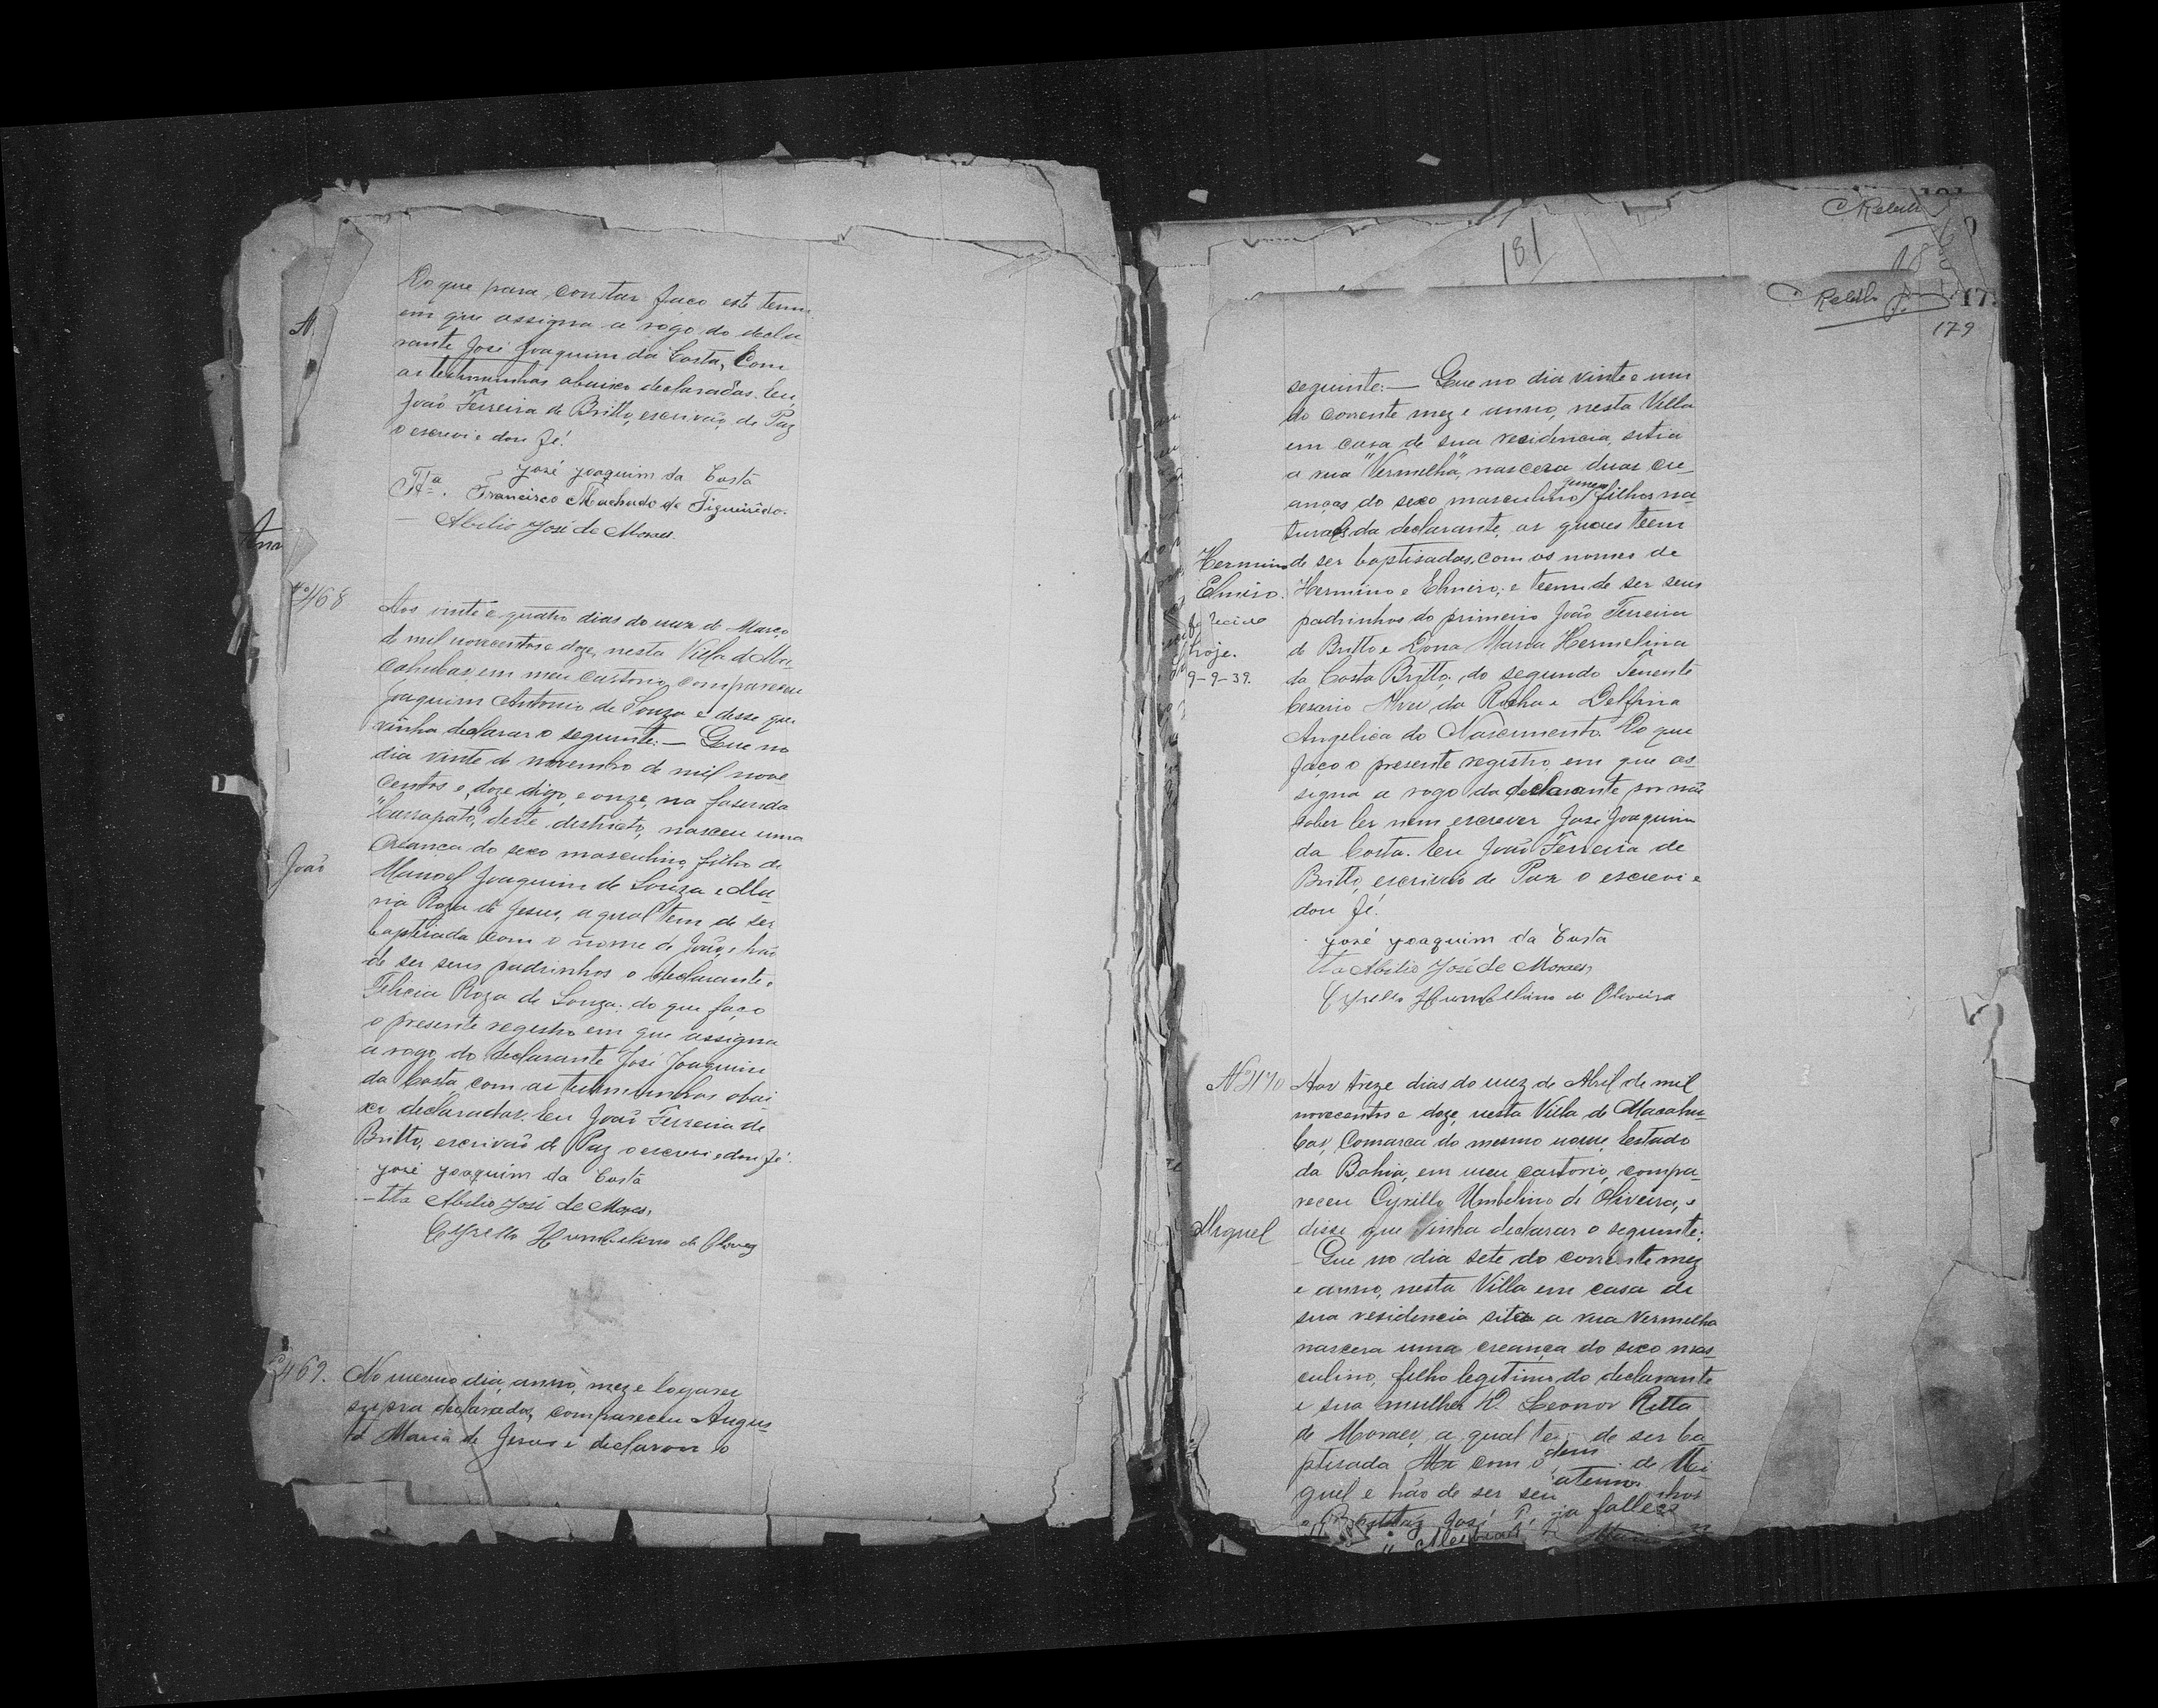 Do que para constar faço este termo
em que assigna a rogo do decla
rante José Joaquim da Costa, Com
as testemunhas abaixo declaradas. Eu,
João Ferreira de Britto, escrivão de Paz
o escrevi e dou fé.
José Joaquim da Costa
Tta. Francisco Machado de Figueirêdo.
Abilio José de Moraes.
Nº 468
Aos vinte e quatro dias do mez de Março
de mil novecentos e doze, nesta Villa de Ma
cahubas, em meu cartorio, compareceu
Joaquim Antonio de Souza e disse que
vinha declarar o seguinte: — Que no
dia vinte de novembro de mil nove
centos e, doze digo, e onze, na fasenda
"Carrapato", deste destricto, nasceu uma
João
creança do sexo masculino, filho de
Manoel Joaquim de Souza e Ma
ria Roza de Jesus, a qual tem de ser
baptisada com o nome de João, e hão
de ser seus padrinhos o declarante e
Felicia Roza de Souza: do que faço
o presente registro em que assigna
a rogo do declarante José Joaquim
da Costa com as testemunhas abai
xo declaradas. Eu João Ferreira de
Britto, escrivão de Paz o escrevi e dou fé.
José Joaquim da Costa
Tta Abilio José de Moraes,
Cyrello Humbelino de Oliveira
469.
No mesmo dia, anno, mez e logares
supra declarados, compareceu Augus
ta Maria de Jesus e declarou o
181
179
seguinte: — Que no dia vinte e um
do corrente mez e anno, nesta Villa
em casa de sua residencia, sitia
a rua "Vermelha", nascera duas cre
anças do sexo masculino, gemeos filhos na
turaes da declarante, as quaes teem
Hermino
de ser baptisadas, com os nomes de
Elmiro.
Hermino e Elmiro; e teem de ser seus
padrinhos do primeiro João Ferreira
hoje.
de Britto e Dona Maria Hermelina
9-9-39.
da Costa Britto; do segundo Tenente
Cesario Alves da Rocha e Delfina
Angelica do Nascimento. Do que
faço o presente registro em que as
signa a rogo da declarante por não
saber ler nem escrever José Joaquim
da Costa. Eu João Ferreira de
Britto, escrivão de Paz o escrevi e
dou fé.
José Joaquim da Costa
Tta Abilio José de Moraes,
Cyrello Humbellino de Oliveira
Nº 470
Aos treze dias do mez de Abril de mil
novecentos e doze, nesta Villa de Macahu-
bas, Comarca do mesmo nome, Estado
da Bahia, em meu cartorio, compa-
receu Cyrillo Umbelino de Oliveira, e
Miguel
disse que vinha declarar o seguinte:
— Que no dia sete do corrente mez
e anno, nesta Villa em casa de
sua residencia sita a rua Vermelha
nascera uma creança do sexo mas
culino, filho legitimo do declarante
e sua mulher D. Leonor Ritta
de Moraes, a qual de ser ba
ptisada com o de Mi
guel e hão de ser
José